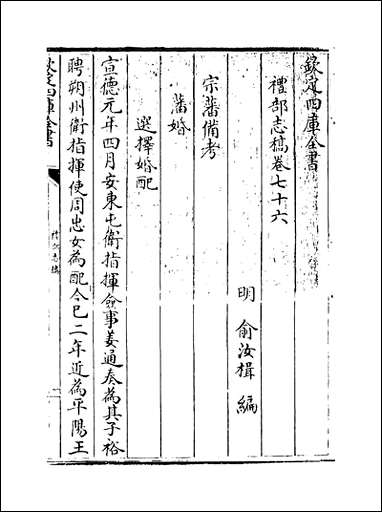 欽定四庫全書
禮部志稿卷七十六
明 俞汝楫 編
宗藩備考
藩婚
選擇婚配
宣德元年四月安東屯衛指揮僉事姜通奏為其子裕
聘朔州衛指揮使周忠女為配今已二年近為平陽王
欽定四庫全書
禮部志稿